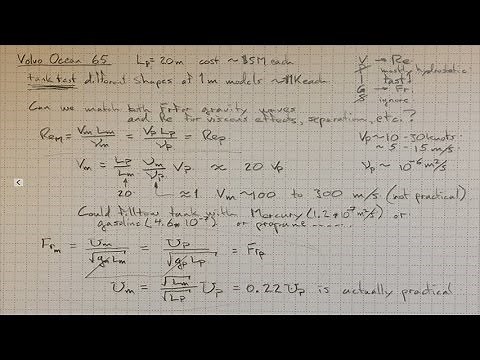 Volvo Ocean 65 Lp = 20m cost ~ $5M each
tank test different shapes of 1m models ~ $1K each
Can we match both Fr for gravity waves
and Re for viscous effects, separation, etc.?
V → Re
P mostly hydrostatic
I fast
G → Fr
S ignore
Re_m = V_m L_m / ν_m = V_p L_p / ν_p = Re_p
V_p ~ 10-30 knots
~ 5-15 m/s
V_m = L_p / L_m ν_m / ν_p V_p ≈ 20 V_p
ν_p ~ 10^-6 m²/s
20 ≈ 1 V_m ~ 100 to 300 m/s (not practical)
Could fill tow tank with Mercury (1.2*10^-7 m²/s) or
gasoline (4.6*10^-7) or propane .....
Fr_m = U_m / √(g_m L_m) = U_p / √(g_p L_p) = Fr_p
U_m = √L_m / √L_p U_p = 0.22 U_p is actually practical